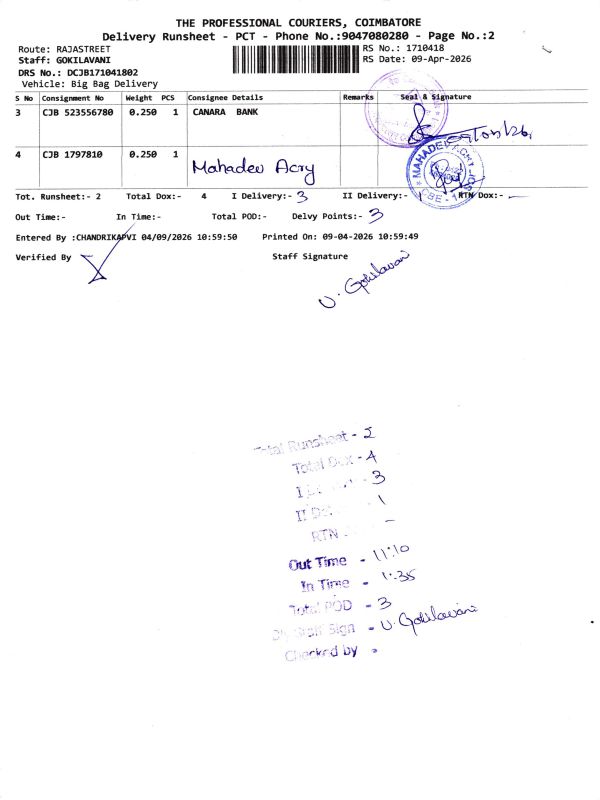 THE PROFESSIONAL COURIERS, COIMBATORE
Delivery Runsheet - PCT - Phone No.:9047080280 - Page No.:2
Route: RAJASTREET
RS No.: 1710418
Staff: GOKILAVANI
RS Date: 09-Apr-2026
DRS No.: DCJB171041802
Vehicle: Big Bag Delivery
S No Consignment No Weight PCS Consignee Details Remarks Seal & Signature
3 CJB 523556780 0.250 1 CANARA BANK
4 CJB 1797810 0.250 1 Mahadev Acry
MAHADEV ACRY
CBE - 1
Tot. Runsheet:- 2 Total Dox:- 4 I Delivery:- 3 II Delivery:- 1 RTN Dox:- -
Out Time:- In Time:- Total POD:- Delvy Points:- 3
Entered By :CHANDRIKAPVI 04/09/2026 10:59:50 Printed On: 09-04-2026 10:59:49
Verified By Staff Signature
V. Gokilavani
Total Runsheet - 2
Total Dox - 4
I - 3
II - 1
RTN -
Out Time - 11:10
In Time - 1:35
Total POD - 3
Sign - V. Gokilavani
Checked by -